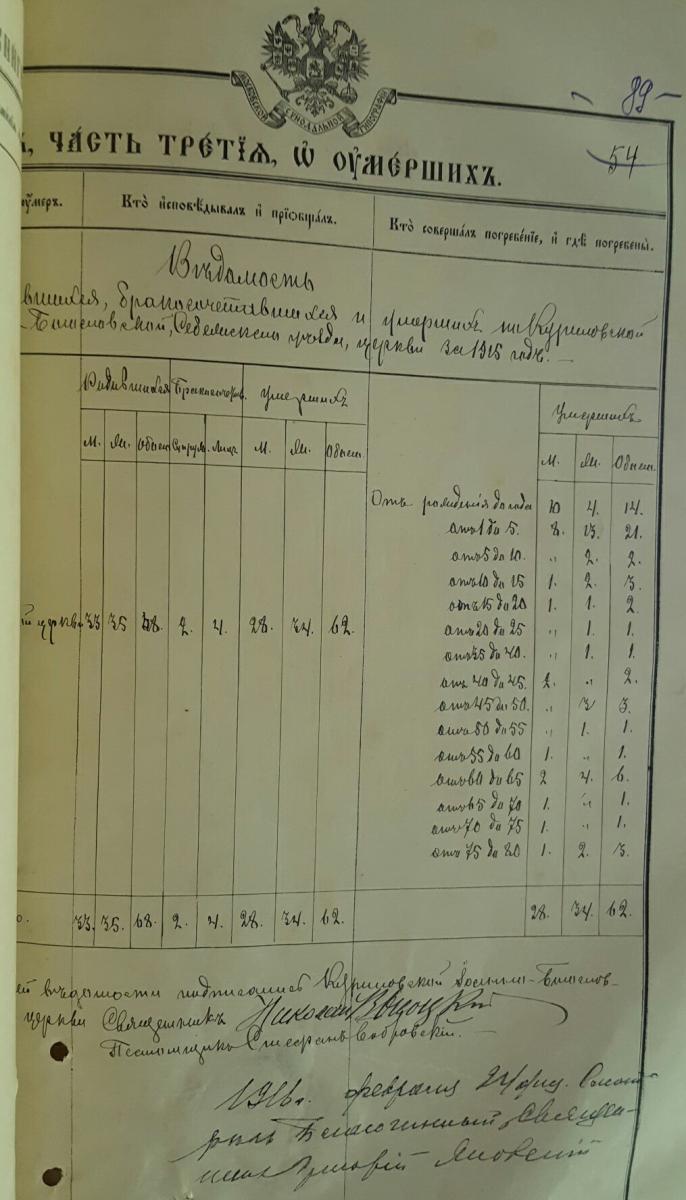 МОСКОВСКОЙ СѴНОДАЛЬНОЙ ТИПОГРАФІИ
— 89 —
54
ЧА́СТЬ ТРЕ́ТІѦ, Ѡ ОУ҆МЕ́РШИХЪ.
оумеръ.
Кто̀ и҆сповѣ́дывалъ и҆ прїѡбща́лъ.
Кто̀ соверша́лъ погребе́нїе, и҆ гдѣ̀ погребены̀.
Вѣдомость
вшихся, бракосочетавшихся и умершихъ по Куриловской
Богословской, Седлецкаго уѣзда, церкви за 1915 годъ. —
Родившихся
умершихъ
Умершихъ
М. Ж. Обоего Лицъ М. Ж. Обоего
М. Ж. Обоего
Отъ рожденія до года 10 4. 14.
отъ 1 до 5. 8. 13. 21.
отъ 5 до 10. „ 2. 2.
отъ 10 до 15 1. 2. 3.
отъ 15 до 20 1. 1. 2
отъ 20 до 25 „ 1. 1.
й церкви 33 35 68. 2. 4. 28. 34. 62.
отъ 35 до 40. „ 1. 1.
отъ 40 до 45. 2. „ 2.
отъ 45 до 50. „ 3 3.
отъ 50 до 55 „ 1. 1.
отъ 55 до 60 1. „ 1.
отъ 60 до 65 2 4. 6.
отъ 65 до 70 1. „ 1.
отъ 70 до 75 1. „ 1.
отъ 75 до 80 1. 2. 3.
о. 33. 35. 68. 2. 4. 28. 34. 62.
28. 34. 62.
ей вѣдомости подписались Куриловской
церкви Священникъ Николай
Псаломщикъ Стефанъ Бобровскій. —
1916 г. февраля 24 дня.
Благочинный, Священ-
никъ Яновскій